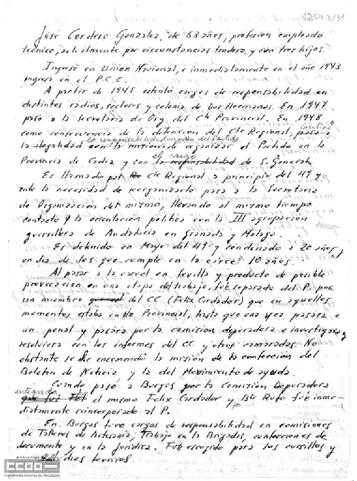 José Cordero Gonzalez, de 63 años, profesion empleado
tecnico, actualmente por circunstancias tendero, y con tres hijos.
Ingresó en Unión Nacional, e inmediatamente en el año 1943
ingresa en el P.C.E.
A partir de 1945 ostentó cargos de responsabilidad en
distintos radios, sectores y colonia de Dos Hermanas. En 1947
pasó a la Secretaria de Org. del Cte Provincial. En 1948
como consecuencia de la detención del Cte Regional, pasa a
la ilegalidad con la mision de organizar el Partido en la
Provincia de Cadiz, y con el cargo de S. General.
Es llamado por Cte Regional a principio del 49 y
ante la necesidad de reorganizarlo pasa a la Secretaria
de Organización del mismo, llevando al mismo tiempo
contacto y la orientación politica con la III agrupación
guerrillera de Andalucia en Granada y Malaga.
Es detenido en Mayo del 49 y condenado a 20 años,
de los que cumple en la carcel 10 años.
Al pasar a la carcel en Sevilla y producto de posible
provocacion en una etapa del trabajo, fue separado del P. por
un miembro del CC (Felix Cardador) que en aquellos
momentos estaba en la Provincial, hasta que una vez pasara a
un penal y pasara por la comision depuradora e investigara y
resolviera con los informes del CC y otros camaradas. No
obstante se le encomendó la mision de la confección del
Boletin de Noticia y la del Movimiento de ayuda.
Cuando pasó a Burgos por la Comisión Depuradora
el mismo Felix Cardador y fue inme-
diatamente reincorporado al P.
En Burgos tuvo cargos de responsabilidad en comisiones
de Talleres de Artesania, Trabajo en la Brigada, confecciones de
documento y en la Juridica. Fue escogido para los cursillos y
tecnicos.
ccoo